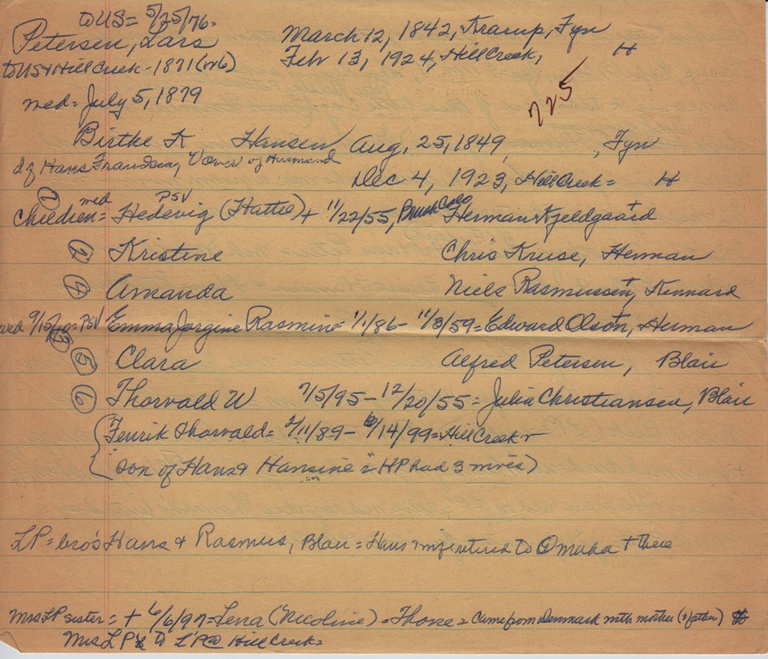 to US = 5/25/76 =
Petersen, Lars March 12, 1842, Krarup, Fyn
Feb 13, 1924, Hill Creek, H
to US & Hill Creek - 1871 (or 6)
725
med = July 5, 1879
Birthe K Hansen, Aug, 25, 1849, , Fyn
d of Hans Frandsen, Weaver of
Dec 4, 1923, Hill Creek = H
Children = ① med PSV Hedevig (Hattie) + 11/22/55, Brush Colo Herman Kjeldgaard
Kristine Chris Kruse, Herman
④ Amanda Niels Rasmussen +, Kennard
9/15/10 = PSV Emma Jorgine Rasmine 1/1/86 - 11/3/59 = Edward Olson +, Herman
⑤ Clara Alfred Petersen, Blair
⑥ Thorvald W 7/5/95 - 12/20/55 = Julia Christiansen, Blair
Fenrik Thorvald = 2/11/89 - 6/14/99 = Hill Creek
son of Hans & Hansine = HP had 3 mres)
LP = bro's Hans & Rasmus, Blair = Hans retired to Omaha + there
Mrs LP sister = + 6/6/97 = Lena (Nicoline) = Thone = Came from Denmark with mother (& father)
Mrs LP & to LP @ Hill Creek =